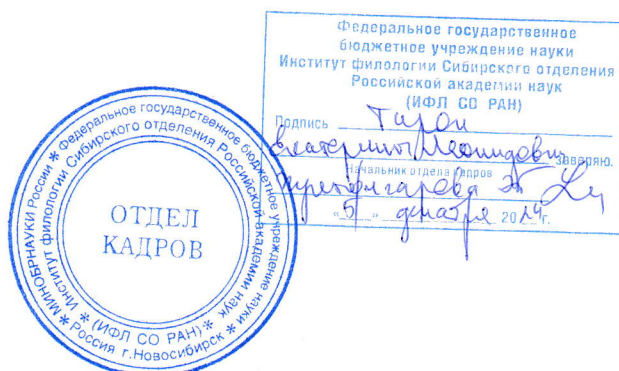 Федеральное государственное
бюджетное учреждение науки
Институт филологии Сибирского отделения
Российской академии наук
(ИФЛ СО РАН)
Подпись Тирон
Екатерины Леонидовны заверяю.
Начальник отдела кадров
"5" декабря 2024г.
МИНОБРНАУКИ России * Федеральное государственное бюджетное учреждение науки *
Институт филологии Сибирского отделения Российской академии наук *
* (ИФЛ СО РАН) *
Россия г.Новосибирск
ОТДЕЛ
КАДРОВ